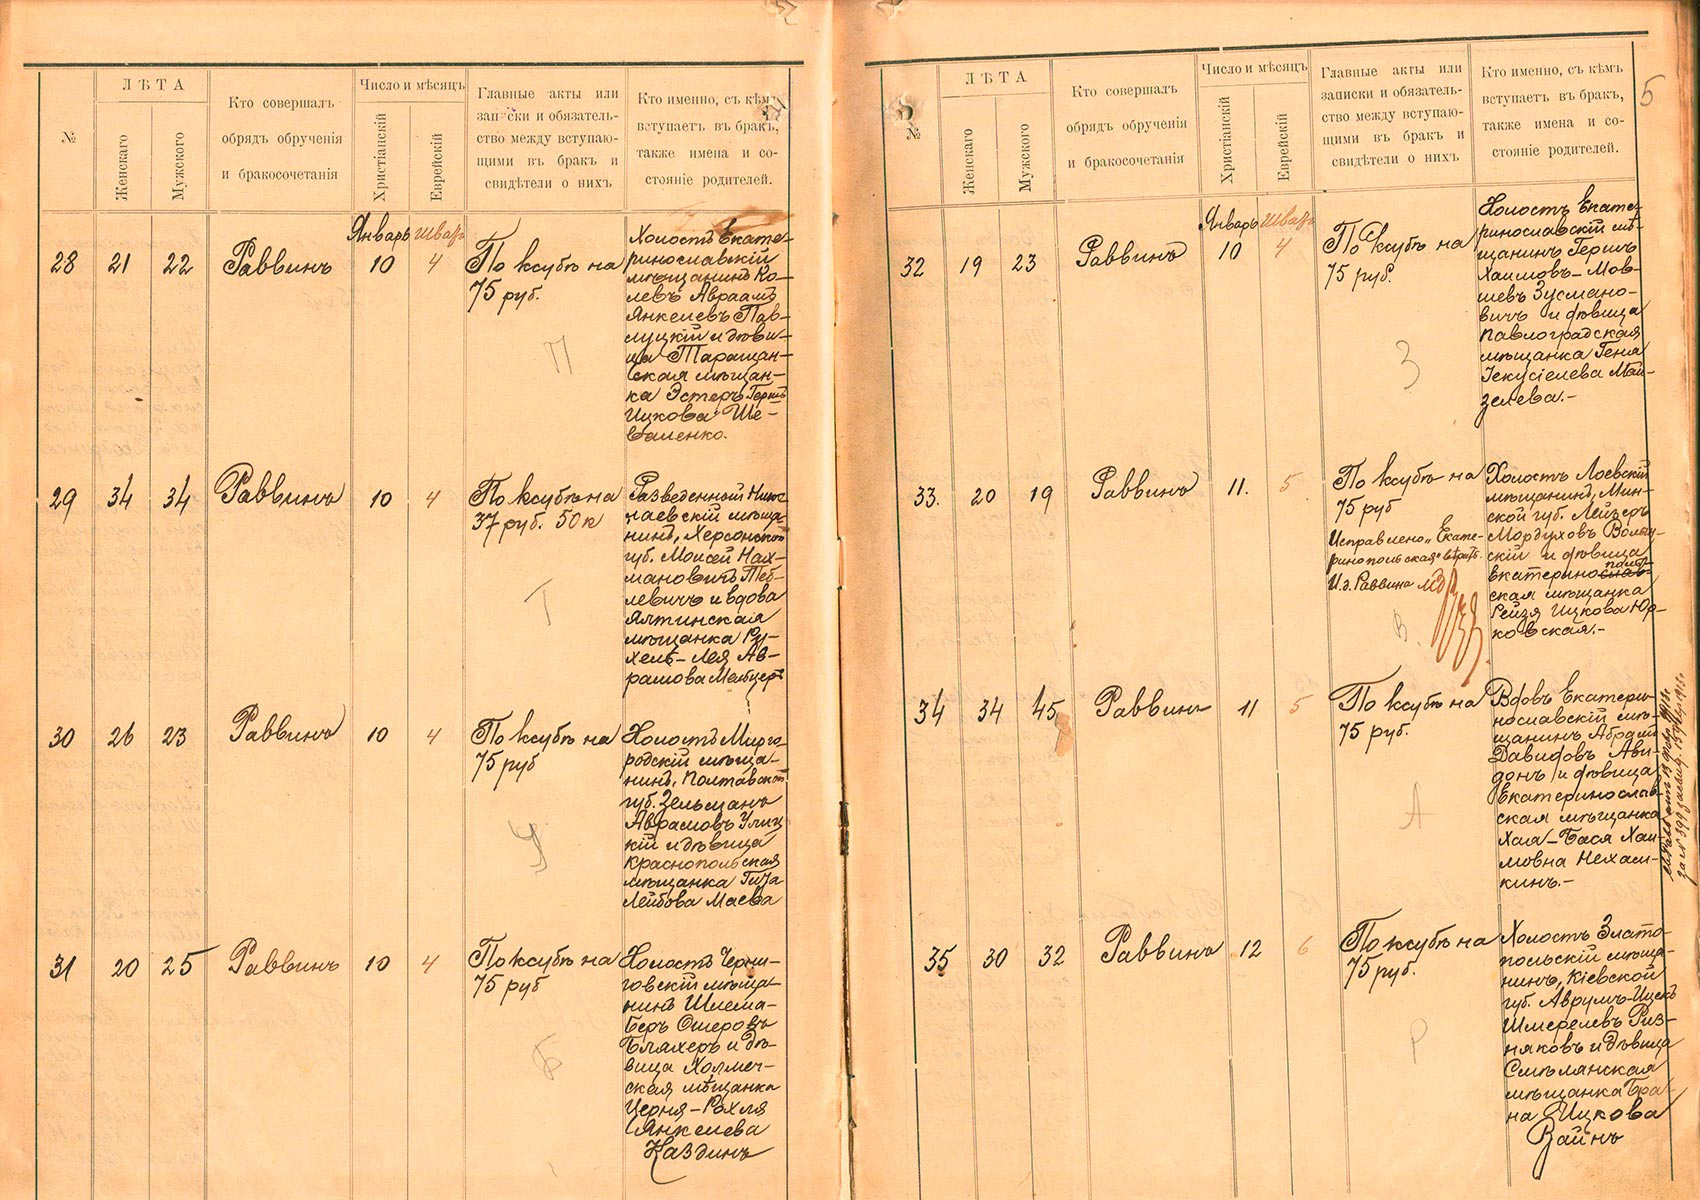 ЛѢТА
Число и мѣсяцъ
№
Женскаго
Мужского
Кто совершалъ
обрядъ обрученія
и бракосочетанія
Христіанскій
Еврейскій
Главные акты или
записки и обязатель-
ство между вступаю-
щими въ бракъ и
свидѣтели о нихъ
Кто именно, съ кѣмъ
вступаетъ въ бракъ,
также имена и со-
стояніе родителей.
Январь Шватъ
28 21 22 Раввинъ 10 4
По ксубѣ на
75 руб.
П
Холостъ Екате-
ринославскій
мѣщанинъ Ко-
левъ Авраамъ
Янкелевъ Пав-
луцкій и дѣви-
ца Таращан-
ская мѣщан-
ка Эстеръ
Ицкова Ше-
валенко.
29 34 34 Раввинъ 10 4
По ксубѣ на
37 руб. 50 к
Т
Разведенный Нико-
лаевскій мѣща-
нинъ, Херсонской
губ. Моисей Нах-
мановичъ Теб-
левичъ и вдова
Ялтинская
мѣщанка Ру-
хель-Лея Ав-
рамова Мельцеръ
30 26 23 Раввинъ 10 4
По ксубѣ на
75 руб
У
Холостъ Мирго-
родскій мѣща-
нинъ, Полтавской
губ. Зельманъ
Аврамовъ Улиц-
кій и дѣвица
Краснопольская
мѣщанка Гита
Лейбова Маева
31 20 25 Раввинъ 10 4
По ксубѣ на
75 руб
Б
Холостъ Черни-
говскій мѣща-
нинъ Шлема-
Беръ Ошеровъ
Бляхеръ и дѣ-
вица Холмеч-
ская мѣщанка
Черня-Рохля
Янкелева
Каздинъ
5
ЛѢТА
Число и мѣсяцъ
№
Женскаго
Мужского
Кто совершалъ
обрядъ обрученія
и бракосочетанія
Христіанскій
Еврейскій
Главные акты или
записки и обязатель-
ство между вступаю-
щими въ бракъ и
свидѣтели о нихъ
Кто именно, съ кѣмъ
вступаетъ въ бракъ,
также имена и со-
стояніе родителей.
Январь Шватъ
32 19 23 Раввинъ 10 4
По ксубѣ на
75 руб.
З
Холостъ Екате-
ринославскій мѣ-
щанинъ Гершъ
Хаимовъ-Мов-
шевъ Зусмано-
вичъ и дѣвица
Павлоградская
мѣщанка Геня
Іекусіелева Май-
зелева.-
33. 20 19 Раввинъ 11. 5
По ксубѣ на
75 руб
Исправлено „Екате-
ринопольская" вѣрить.
И.д. Раввина
В.
Холостъ Лоевскій
мѣщанинъ, Мин-
ской губ. Лейзеръ
Мордуховъ Волын-
скій и дѣвица
поль-
Екатеринослав-
ская мѣщанка
Рейзя Ицкова Юр-
ковская.-
34 34 45 Раввинъ 11 5
По ксубѣ на
75 руб.
А
Вдовъ Екатери-
нославскій мѣ-
щанинъ Абрамъ
Давидовъ Ави-
донъ и дѣвица
Екатеринослав-
ская мѣщанка
Хая-Бася Хаи-
мовна Нехам-
кинъ.-
35 30 32 Раввинъ 12 6
По ксубѣ на
75 руб.
Р
Холостъ Злато-
польскій мѣща-
нинъ, Кіевской
губ. Аврумъ-Ицекъ
Шмерелевъ Риз-
няковъ и дѣвица
Смѣлянская
мѣщанка Гра-
на Ицкова
Вайнъ